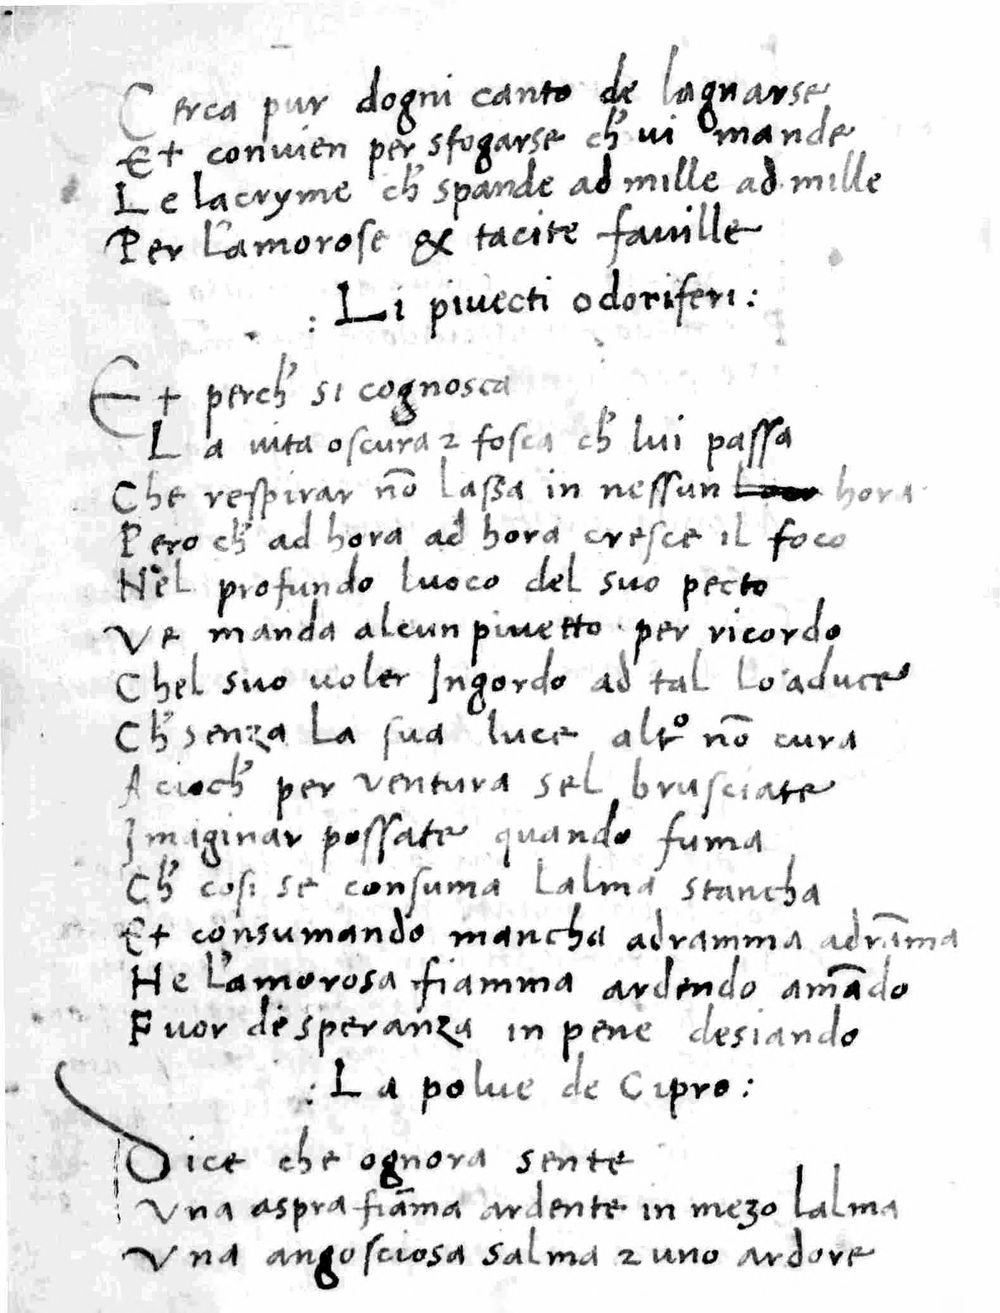 Cerca pur dogni canto de lagnarse
Et convien per sfogarse ch' vi mande
Le lacryme ch' spande ad mille ad mille
Per L'amorose & tacite faville
: Li pivecti odoriferi :
Et perch' si cognosca
La vita oscura 2 fosca ch' lui passa
Che respirar nō Laßa in nessun hora
Pero ch' ad hora ad hora cresce il foco
Nel profundo luoco del suo pecto
Ve manda alcun pivetto per ricordo
Chel suo voler Ingordo ad tal Lo aduce
Ch' senza La sua luce altº nō cura
Acioch' per ventura sel brusciate
Imaginar possate quando fuma
Ch' cosi se consuma Lalma stancha
Et consumando mancha adramma adrāma
He L'amorosa fiamma ardendo amādo
Fuor de speranza in pene desiando
: La polve de Cipro :
Dice che ognora sente
Una aspra fiāma ardente in mezo lalma
Una angosciosa salma 2 uno ardore